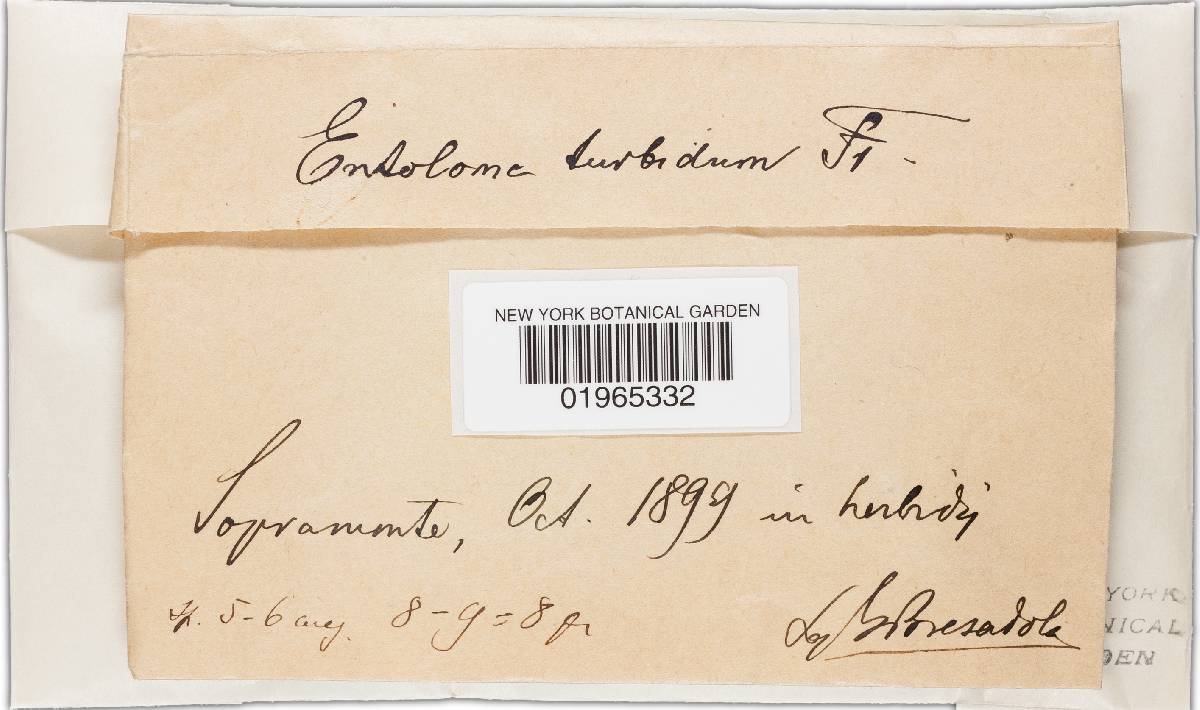 Entoloma turbidum Fr.
NEW YORK BOTANICAL GARDEN
01965332
Sopramonte, Oct. 1899 in herbidis
sp. 5-6 ang. 8-9=8
Bresadola
YORK
NICAL
DEN